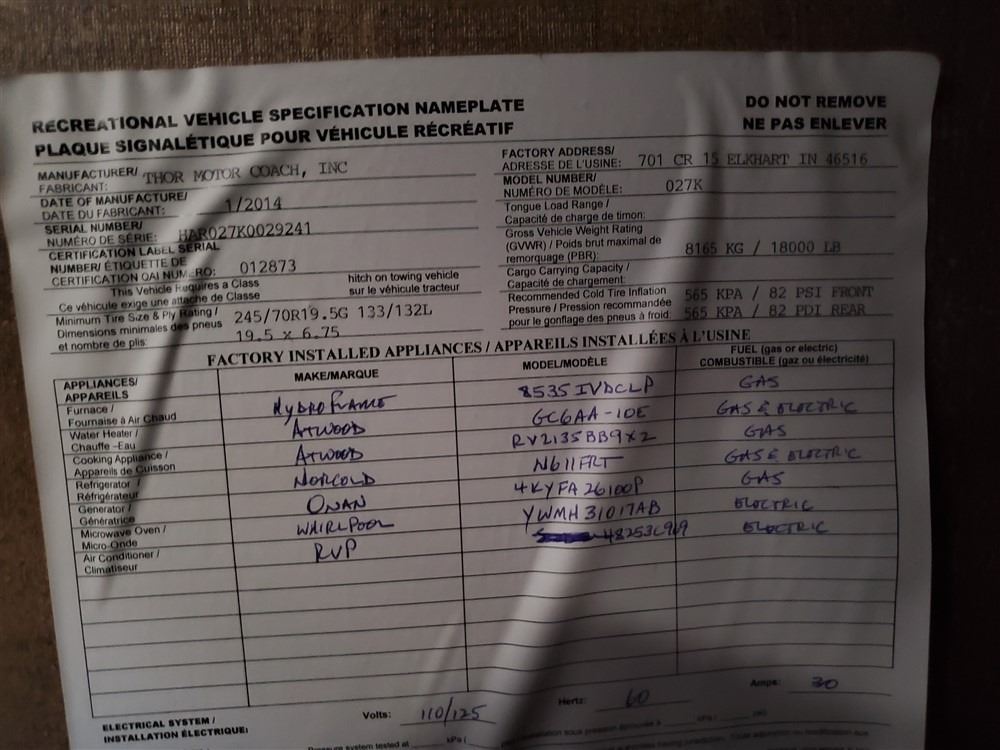 RECREATIONAL VEHICLE SPECIFICATION NAMEPLATE
PLAQUE SIGNALÉTIQUE POUR VÉHICULE RÉCRÉATIF
DO NOT REMOVE
NE PAS ENLEVER
MANUFACTURER/
FABRICANT: THOR MOTOR COACH, INC
DATE OF MANUFACTURE/
DATE DU FABRICANT: 1/2014
SERIAL NUMBER/
NUMÉRO DE SÉRIE: HAR027K0029241
CERTIFICATION LABEL SERIAL
NUMBER/ ÉTIQUETTE DE
CERTIFICATION QAI NUMÉRO: 012873
This Vehicle Requires a Class hitch on towing vehicle
Ce véhicule exige une attache de Classe sur le véhicule tracteur
Minimum Tire Size & Ply Rating / 245/70R19.5G 133/132L
Dimensions minimales des pneus
et nombre de plis: 19.5 x 6.75
FACTORY ADDRESS/
ADRESSE DE L'USINE: 701 CR 15 ELKHART IN 46516
MODEL NUMBER/
NUMÉRO DE MODÈLE: 027K
Tongue Load Range /
Capacité de charge de timon:
Gross Vehicle Weight Rating
(GVWR) / Poids brut maximal de
remorquage (PBR): 8165 KG / 18000 LB
Cargo Carrying Capacity /
Capacité de chargement:
Recommended Cold Tire Inflation 565 KPA / 82 PSI FRONT
Pressure / Pression recommandée
pour le gonflage des pneus à froid: 565 KPA / 82 PDI REAR
FACTORY INSTALLED APPLIANCES / APPAREILS INSTALLÉES À L'USINE
APPLIANCES/ MAKE/MARQUE MODEL/MODÈLE FUEL (gas or electric)
APPAREILS COMBUSTIBLE (gaz ou électricité)
Furnace / HYDROFLAME 8535 IVDCLP GAS
Fournaise à Air Chaud
Water Heater / ATWOOD GC6AA-10E GAS & ELECTRIC
Chauffe –Eau
Cooking Appliance / ATWOOD RV2135BB9X2 GAS
Appareils de Cuisson
Refrigerator / NORCOLD N611FRT GAS & ELECTRIC
Réfrigérateur
Generator / ONAN 4KYFA26100P GAS
Génératrice
Microwave Oven / WHIRLPOOL YWMH31017AB ELECTRIC
Micro-Onde
Air Conditioner / RVP 48253C969 ELECTRIC
Climatiseur
ELECTRICAL SYSTEM / Volts: 110/125 Hertz: 60 Amps: 30
INSTALLATION ÉLECTRIQUE: